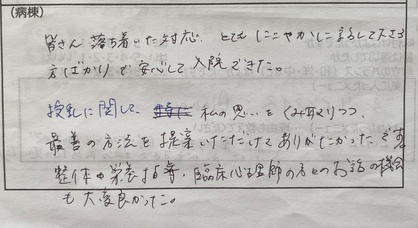 (病棟)
皆さん落ち着いた対応、とてもにこやかに話して下さる
方ばかりで安心して入院できた。
授乳に関して、私の思いをくみ取りつつ
最善の方法を提案いただけてありがたかったです。
整体や栄養指導、臨床心理師の方とのお話の機会
も大変良かった。